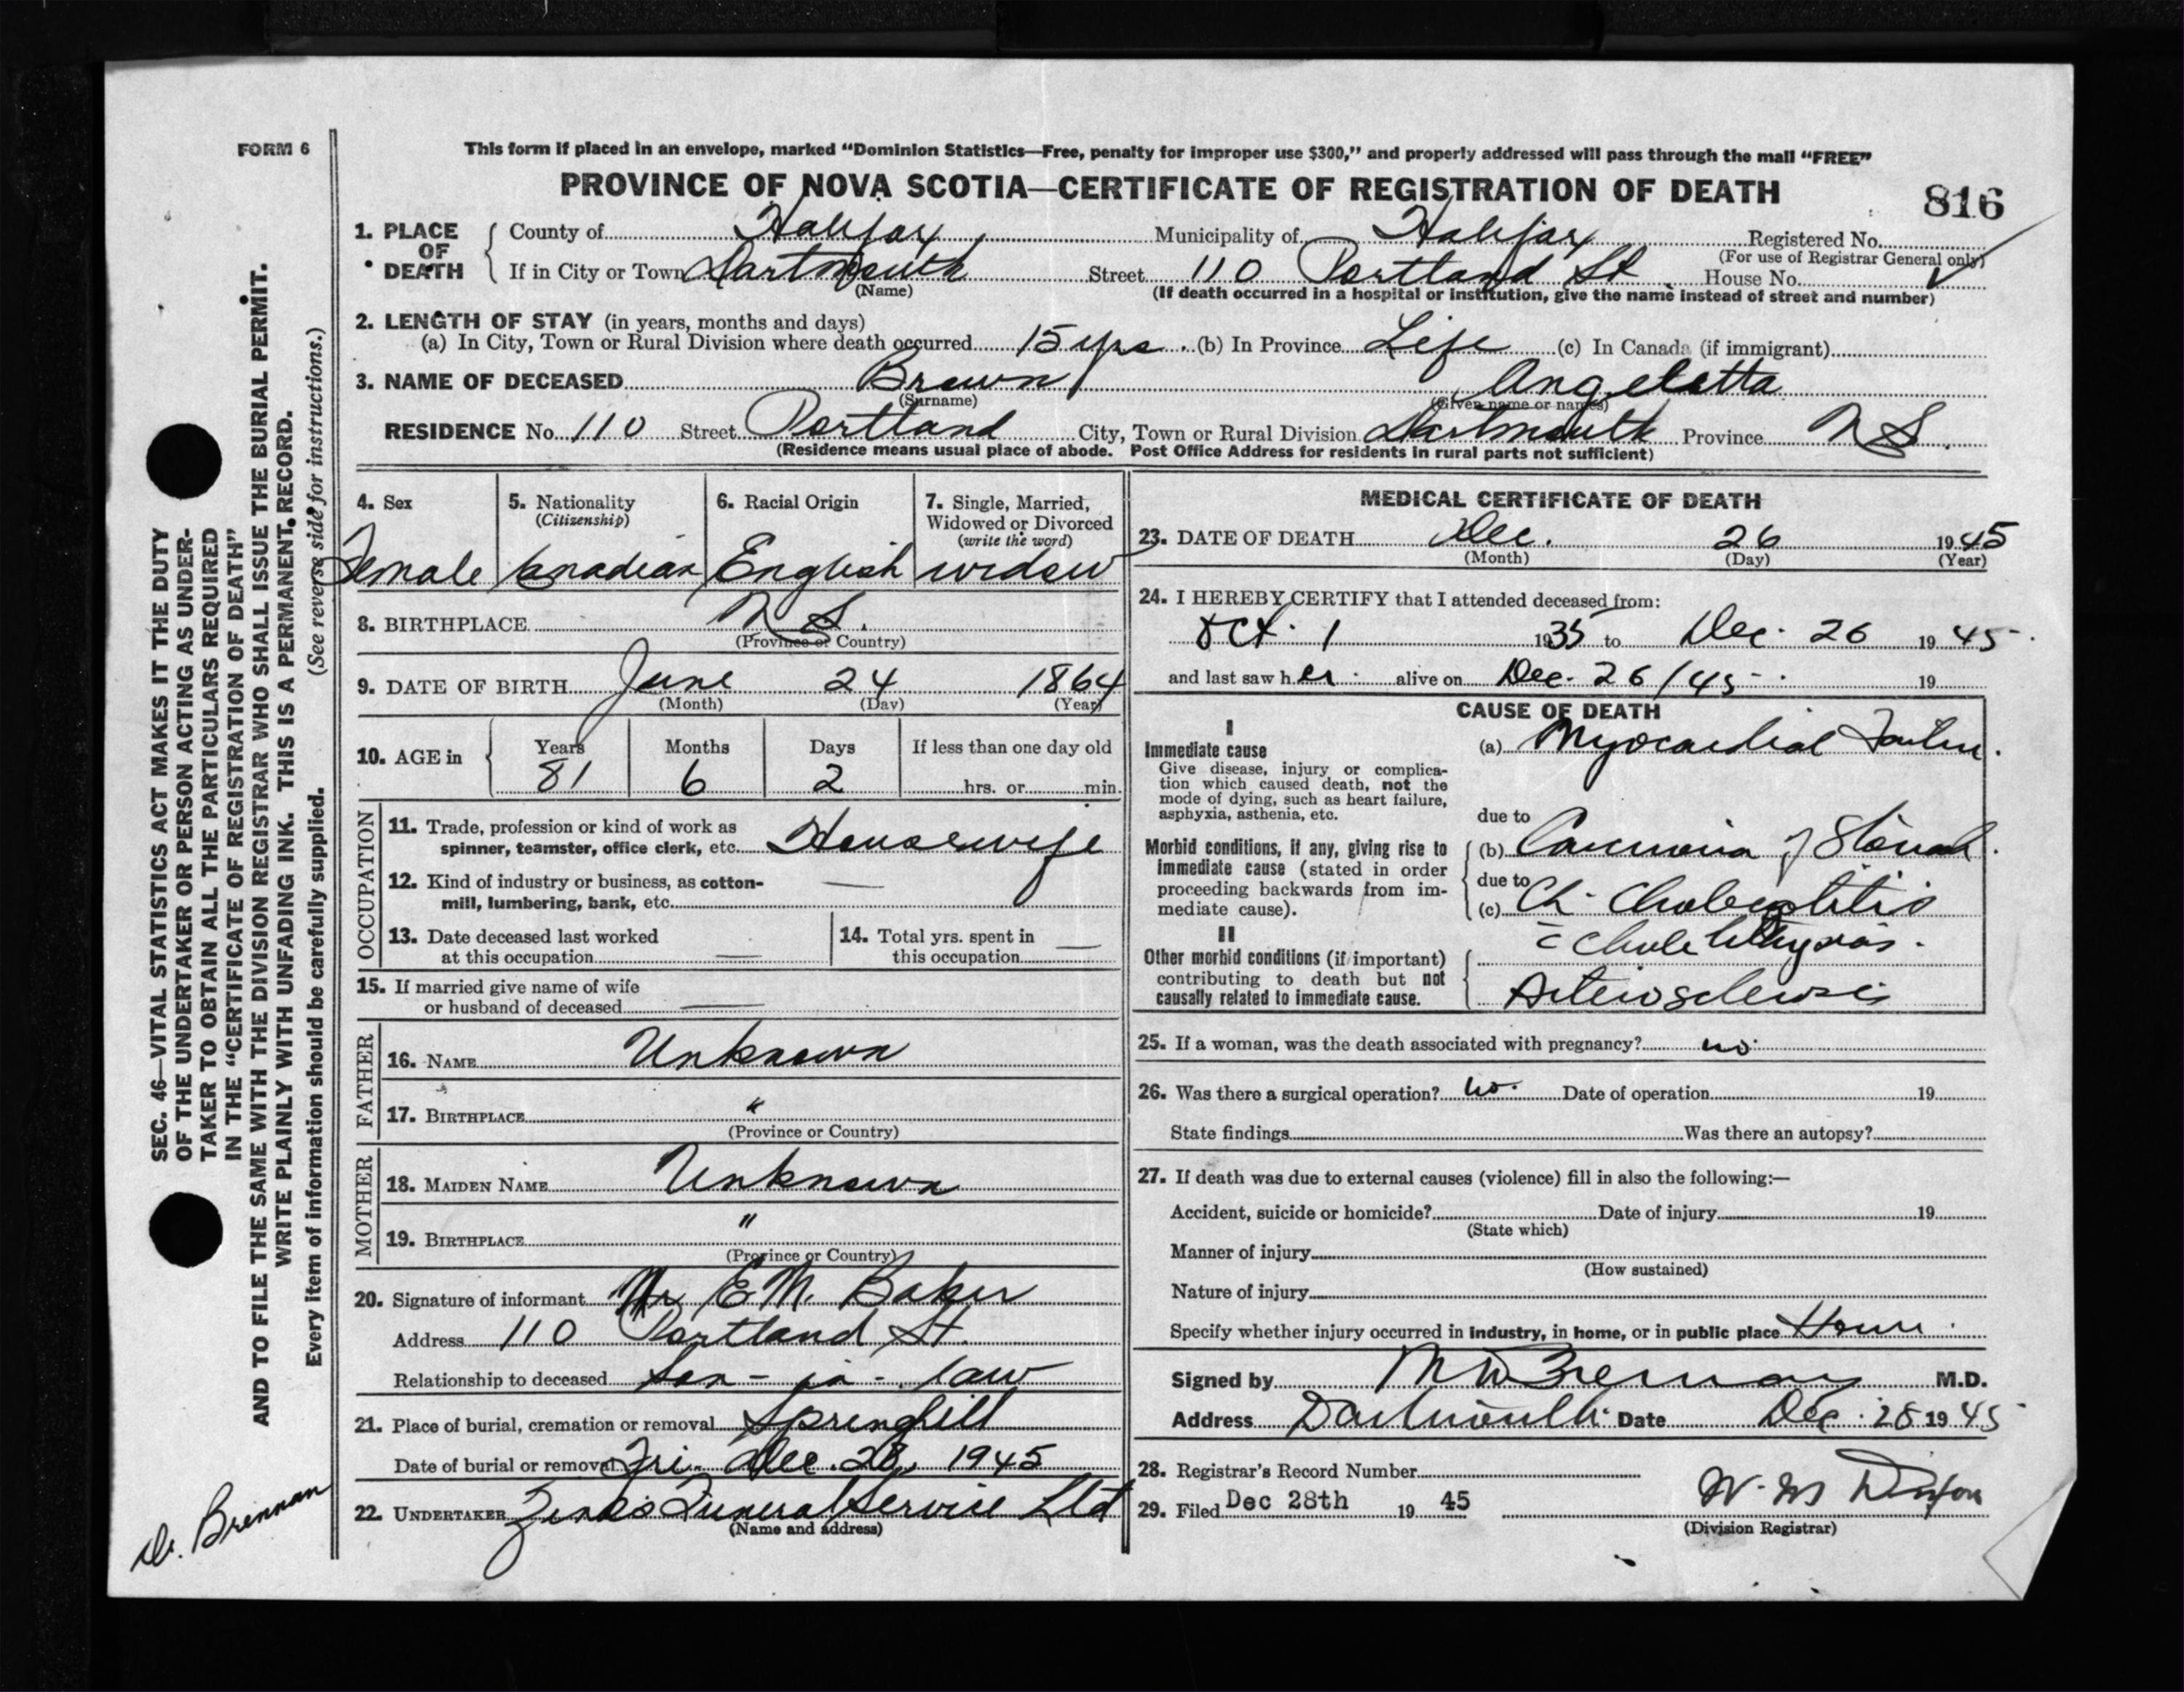 FORM 6
This form if placed in an envelope, marked “Dominion Statistics—Free, penalty for improper use $300,” and properly addressed will pass through the mail “FREE”
PROVINCE OF NOVA SCOTIA—CERTIFICATE OF REGISTRATION OF DEATH
816
1. PLACE OF DEATH
County of Halifax Municipality of Halifax Registered No.
(For use of Registrar General only)
If in City or Town Dartmouth Street 110 Portland St House No.
(Name)
(If death occurred in a hospital or institution, give the name instead of street and number)
2. LENGTH OF STAY (in years, months and days)
(a) In City, Town or Rural Division where death occurred 15 yrs. (b) In Province Life (c) In Canada (if immigrant)
3. NAME OF DECEASED Brown Angeletta
(Surname) (Given name or names)
RESIDENCE No. 110 Street Portland City, Town or Rural Division Dartmouth Province N S.
(Residence means usual place of abode. Post Office Address for residents in rural parts not sufficient)
4. Sex
Female
5. Nationality
(Citizenship)
Canadian
6. Racial Origin
English
7. Single, Married,
Widowed or Divorced
(write the word)
widow
8. BIRTHPLACE N S.
(Province or Country)
9. DATE OF BIRTH June 24 1864
(Month) (Day) (Year)
10. AGE in
Years Months Days If less than one day old
81 6 2 hrs. or min.
OCCUPATION
11. Trade, profession or kind of work as
spinner, teamster, office clerk, etc. Housewife
12. Kind of industry or business, as cotton-
mill, lumbering, bank, etc. —
13. Date deceased last worked
at this occupation —
14. Total yrs. spent in
this occupation —
15. If married give name of wife
or husband of deceased —
FATHER
16. NAME Unknown
17. BIRTHPLACE "
(Province or Country)
MOTHER
18. MAIDEN NAME Unknown
19. BIRTHPLACE "
(Province or Country)
20. Signature of informant Mr E M. Baker
Address 110 Portland St.
Relationship to deceased Son-in-law
21. Place of burial, cremation or removal Springhill
Date of burial or removal Fri. Dec. 28, 1945
22. UNDERTAKER Zink's Funeral Service Ltd
(Name and address)
MEDICAL CERTIFICATE OF DEATH
23. DATE OF DEATH Dec. 26 1945
(Month) (Day) (Year)
24. I HEREBY CERTIFY that I attended deceased from:
Oct. 1 1935 to Dec. 26 1945.
and last saw her alive on Dec. 26/45 19
CAUSE OF DEATH
I
Immediate cause
Give disease, injury or complica-
tion which caused death, not the
mode of dying, such as heart failure,
asphyxia, asthenia, etc.
(a) Myocardial Failure.
due to
Morbid conditions, if any, giving rise to
immediate cause (stated in order
proceeding backwards from im-
mediate cause).
(b) Carcinoma of Stomach.
due to
(c) Ch. Cholecystitis
II
Other morbid conditions (if important)
contributing to death but not
causally related to immediate cause.
Arteriosclerosis
25. If a woman, was the death associated with pregnancy? no.
26. Was there a surgical operation? no. Date of operation 19
State findings Was there an autopsy?
27. If death was due to external causes (violence) fill in also the following:—
Accident, suicide or homicide? Date of injury 19
(State which)
Manner of injury
(How sustained)
Nature of injury
Specify whether injury occurred in industry, in home, or in public place Home.
Signed by Brennan M.D.
Address Dartmouth. Date Dec. 28 1945
28. Registrar's Record Number
29. Filed Dec 28th 19 45
(Division Registrar)
SEC. 46—VITAL STATISTICS ACT MAKES IT THE DUTY
OF THE UNDERTAKER OR PERSON ACTING AS UNDER-
TAKER TO OBTAIN ALL THE PARTICULARS REQUIRED
IN THE “CERTIFICATE OF REGISTRATION OF DEATH”
AND TO FILE THE SAME WITH THE DIVISION REGISTRAR WHO SHALL ISSUE THE BURIAL PERMIT.
WRITE PLAINLY WITH UNFADING INK. THIS IS A PERMANENT RECORD.
Every item of information should be carefully supplied. (See reverse side for instructions.)
Dr. Brennan